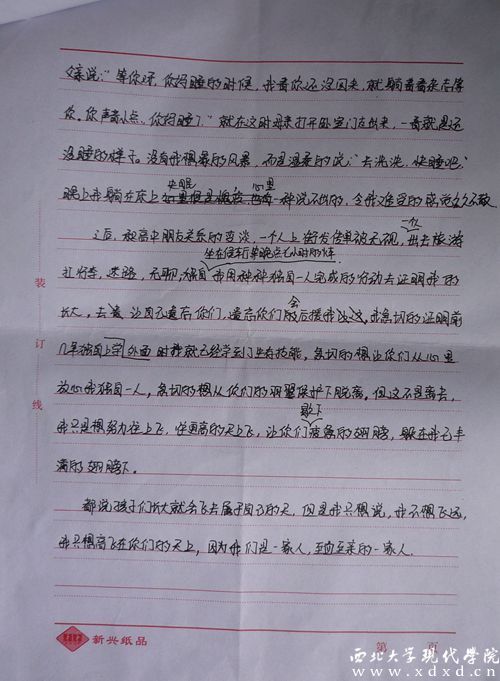 父亲说："等你呀,你妈睡的时候,我看你还没回来,就躺着看杂志等
你。你声音小点,你妈睡了"就在这时母亲打开卧室门走出来,一看就是还
没睡的样子。没有我想象的风暴,而是温柔的说:"去洗洗,快睡吧"
晚上我躺在床上 心里 一种说不出的,令我难受的感觉久久不散
之后,和高中朋友关系的变淡,一个人上街发传单被无视,一个人出去旅游
坐在行李架晚点七小时的火车
扛行李,迷路,无聊, 我用种种独自一人完成的行动去证明我的
长大。去 让自己遗忘你们,遗忘你们会 我急切的证明前
几年独自上学在外面时我就已经学到了生存技能,急切的想让你们从心里
放心我独自一人,急切的想从你们的羽翼保护下脱离。但这不是离去,
我只是想努力往上飞,往更高的天上飞,让你们歇下疲惫的翅膀,躲在我已丰
满的翅膀下。
都说孩子们长大就会飞去属于自己的天,但是我只想说,我不想飞远,
我只想高飞在你们的天上,因为我们是一家人,至亲至亲的一家人.
装
订
线
新兴纸品
第 页
西北大学现代学院
www.xdxd.cn